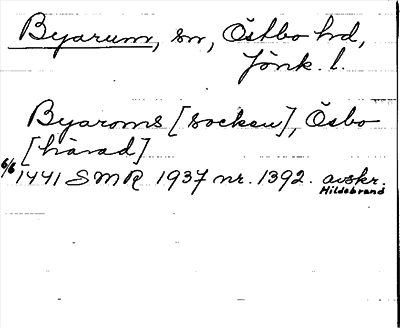 Byarum, sn, Östbo hd,
Jönk. l.
Byaroms [socken], Ösbo
[härad]
6/6 1441 SMR 1937 nr. 1392. avskr.
Hildebrand